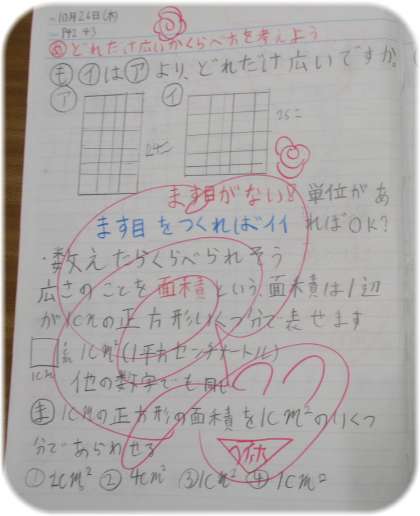 10月26日(木)
P42 43
め どれだけ広いかくらべ方を考えよう
も イはアより、どれだけ広いですか。
ア イ
24こ 25こ
ます目がない! 単位があ
ます目をつくればイイ ればOK?
・数えたらくらべられそう
広さのことを面積という。面積は1辺
が1cmの正方形いくつ分で表せます
1cm² (1平方センチメートル)
1cm
他の数字でも同じ
ま 1cmの正方形の面積を1cm²のいくつ
分であらわせる
① 2cm² ② 4cm² ③ 1cm² ④ 1cm²